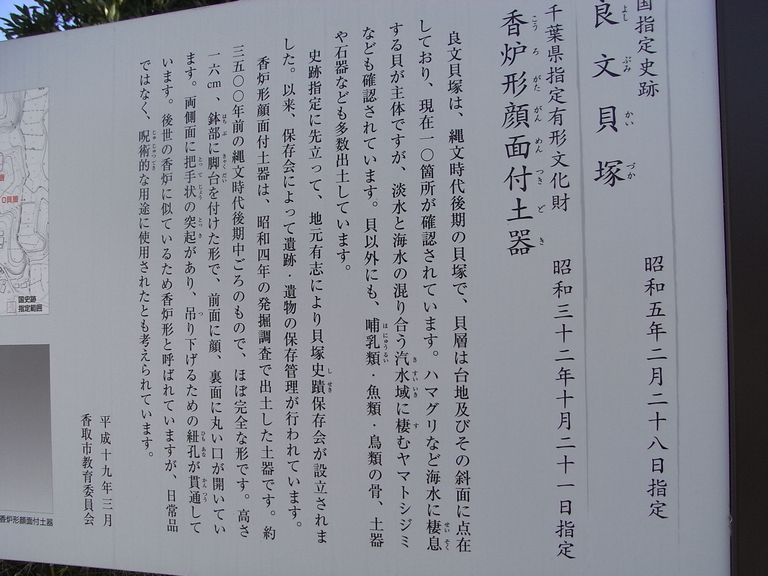 国指定史跡
良文貝塚
よし ぶみ かい づか
昭和五年二月二十八日指定
千葉県指定有形文化財
香炉形顔面付土器
こうろ がた がん めん つき ど き
昭和三十二年十月二十一日指定
良文貝塚は、縄文時代後期の貝塚で、貝層は台地及びその斜面に点在
しており、現在一〇箇所が確認されています。ハマグリなど海水に棲息
せいそく
する貝が主体ですが、淡水と海水の混り合う汽水域に棲むヤマトシジミ
きすいいき す
なども確認されています。貝以外にも、哺乳類・魚類・鳥類の骨、土器
ほにゅうるい
や石器なども多数出土しています。
史跡指定に先立って、地元有志により貝塚史蹟保存会が設立されま
しせき
した。以来、保存会によって遺跡・遺物の保存管理が行われています。
香炉形顔面付土器は、昭和四年の発掘調査で出土した土器です。約
三五〇〇年前の縄文時代後期中ごろのもので、ほぼ完全な形です。高さ
一六cm、鉢部に脚台を付けた形で、前面に顔、裏面に丸い口が開いてい
はちぶ きゃくだい
ます。両側面に把手状の突起があり、吊り下げるための紐孔が貫通して
とってじょう とっき つ ひもあな かんつう
います。後世の香炉に似ているため香炉形と呼ばれていますが、日常品
ではなく、呪術的な用途に使用されたとも考えられています。
じゅじゅつてき
平成十九年三月
香取市教育委員会
国史跡
指定範囲
香炉形顔面付土器